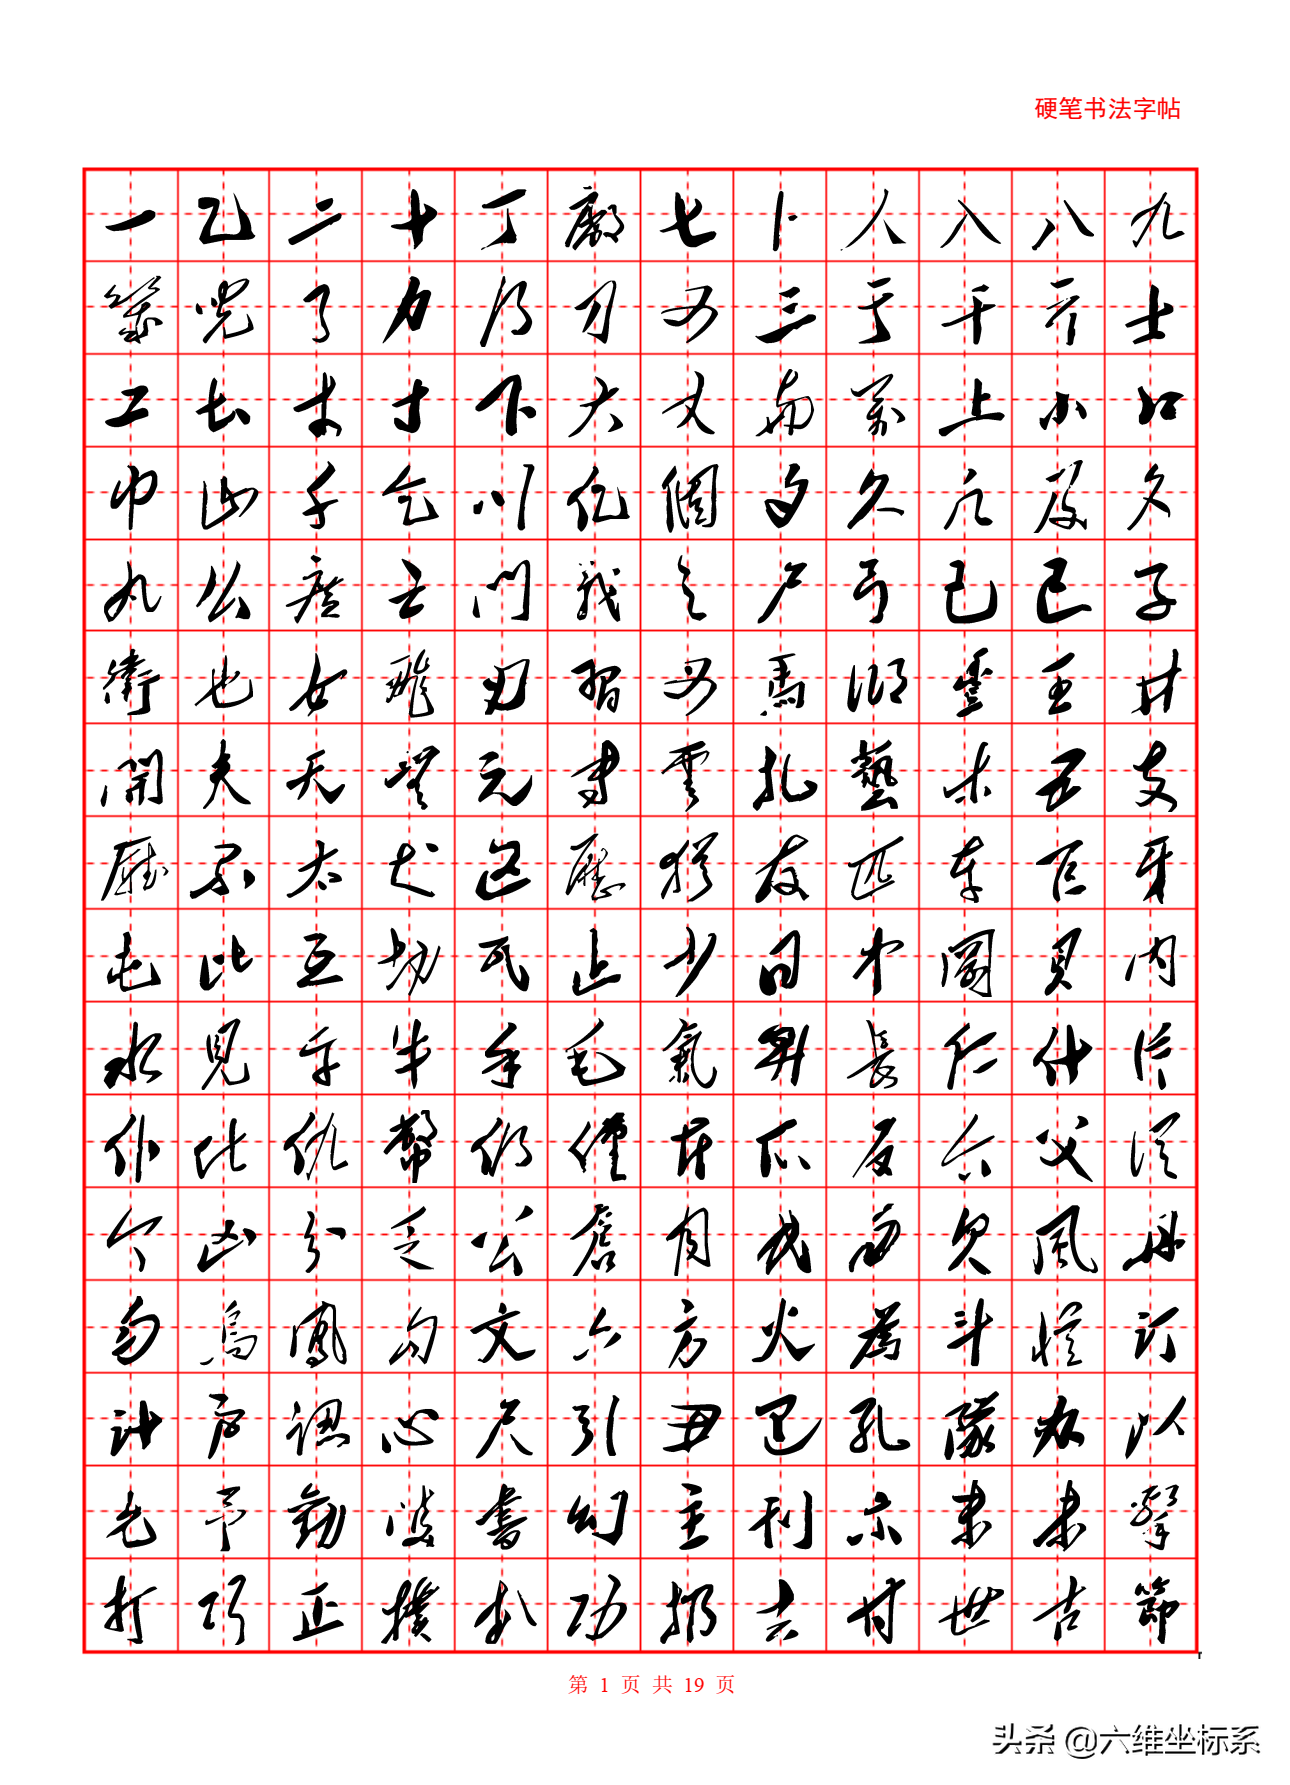 硬笔书法字帖
一乙二十丁廠七卜人入八九
幾兒了力乃刀又三于干亏士
工土才寸下大丈与萬上小口
巾山千乞川亿個勺久凡及夕
丸么廣亡門義之尸弓己已子
衛也女飛刃習叉馬鄉豐王井
開夫天無元專雲扎藝木五支
廳不太犬區歷猶友匹車巨牙
屯比互切瓦止少日中岡貝内
水見午牛手毛氣昇長仁什片
仆化仇幣仍僅斤爪反介父從
今凶分乏公倉月氏勿欠風丹
匀烏鳳勾文六方火為斗憶訂
計户認心尺引丑巴孔隊办以
允予勸雙書幻主刊示末未擊
打巧正撲扒功扔去甘世古節
第 1 页 共 19 页
头条 @六维坐标系